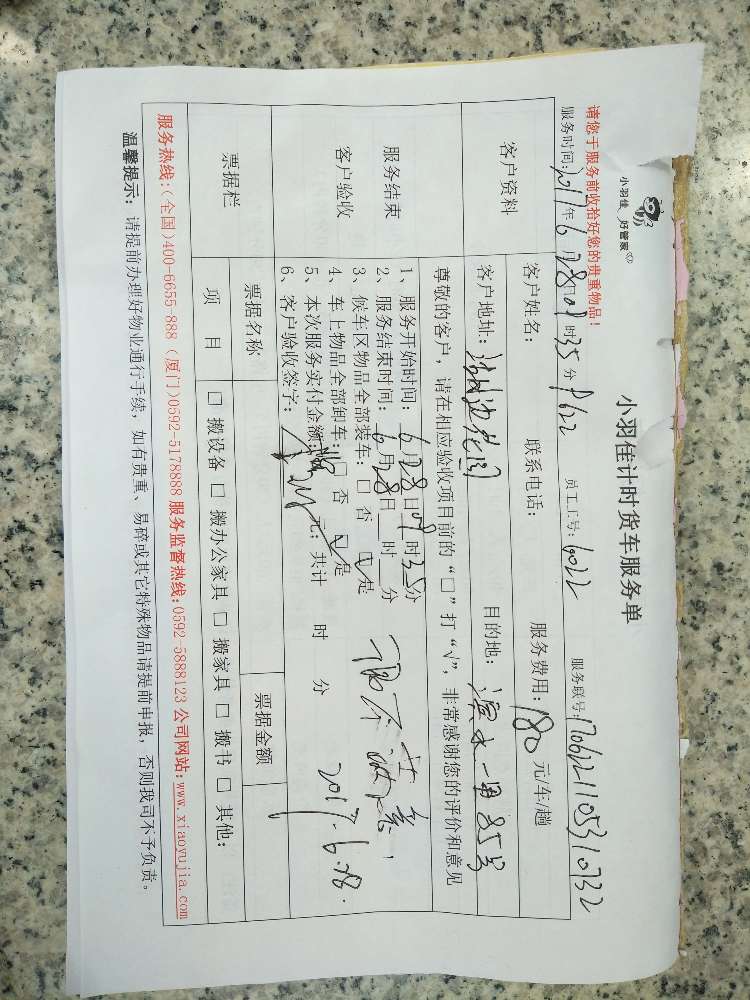 小羽佳 好管家
小羽佳计时货车服务单
请您于服务前收拾好您的贵重物品！
服务时间：2017年6月28日09时35分 P622 员工工号：6022 服务联号：1706221105310732
客户资料
客户姓名： 联系电话： 服务费用：180元/车/趟
客户地址： 目的地：滨水一里85号
尊敬的客户，请在相应验收项目前的“□”打“√”，非常感谢您的评价和意见
服务结束
客户验收
1、服务开始时间：6月28日09时35分
2、服务结束时间：6月28日 时 分
3、候车区物品全部装车：□否 ☑是
4、车上物品全部卸车：□否 ☑是
5、本次服务实付金额： 元；共计 时 分
6、客户验收签字： 2017.6.28.
票据栏
票据名称 票据金额
项目 □搬设备 □搬办公家具 □搬家具 □搬书 □其他：
服务热线：（全国）400-6655-888（厦门）0592-5178888 服务监督热线：0592-5888123 公司网站：www.xiaoyujia.com
温馨提示：请提前办理好物业通行手续，如有贵重、易碎或其它特殊物品请提前申报，否则我司不予负责。